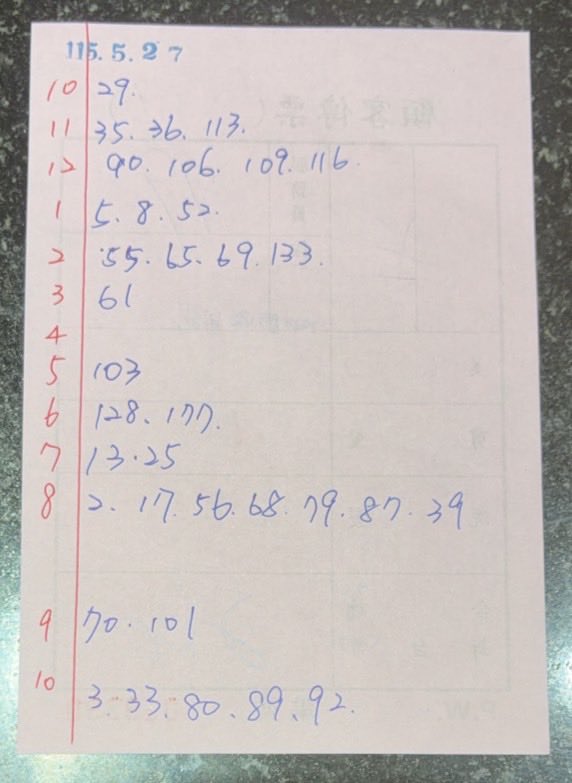 115.5.27
10 29.
11 35.36.113.
12 90.106.109.116
1 5.8.52.
2 55.65.69.133.
3 61
4
5 103
6 128、177.
7 13.25
8 2.17.56.68.79.87.39
9 70.101
10 3.33.80、89、92.